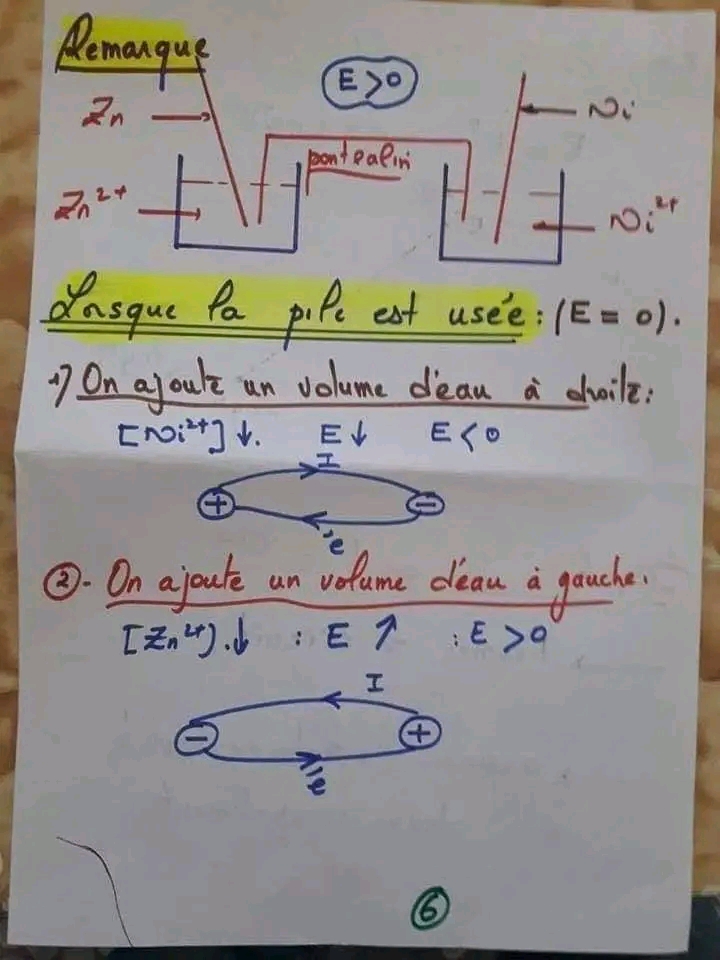 Remarque
E>0
Zn
Ni
pont salin
Zn²⁺
Ni²⁺
Lorsque la pile est usée : (E = 0).
1) On ajoute un volume d'eau à droite :
[Ni²⁺] ↓. E ↓ E < 0
I
+ −
e⁻
② - On ajoute un volume d'eau à gauche.
[Zn²⁺]. ↓ : E ↗ : E > 0
I
− +
e⁻
⑥